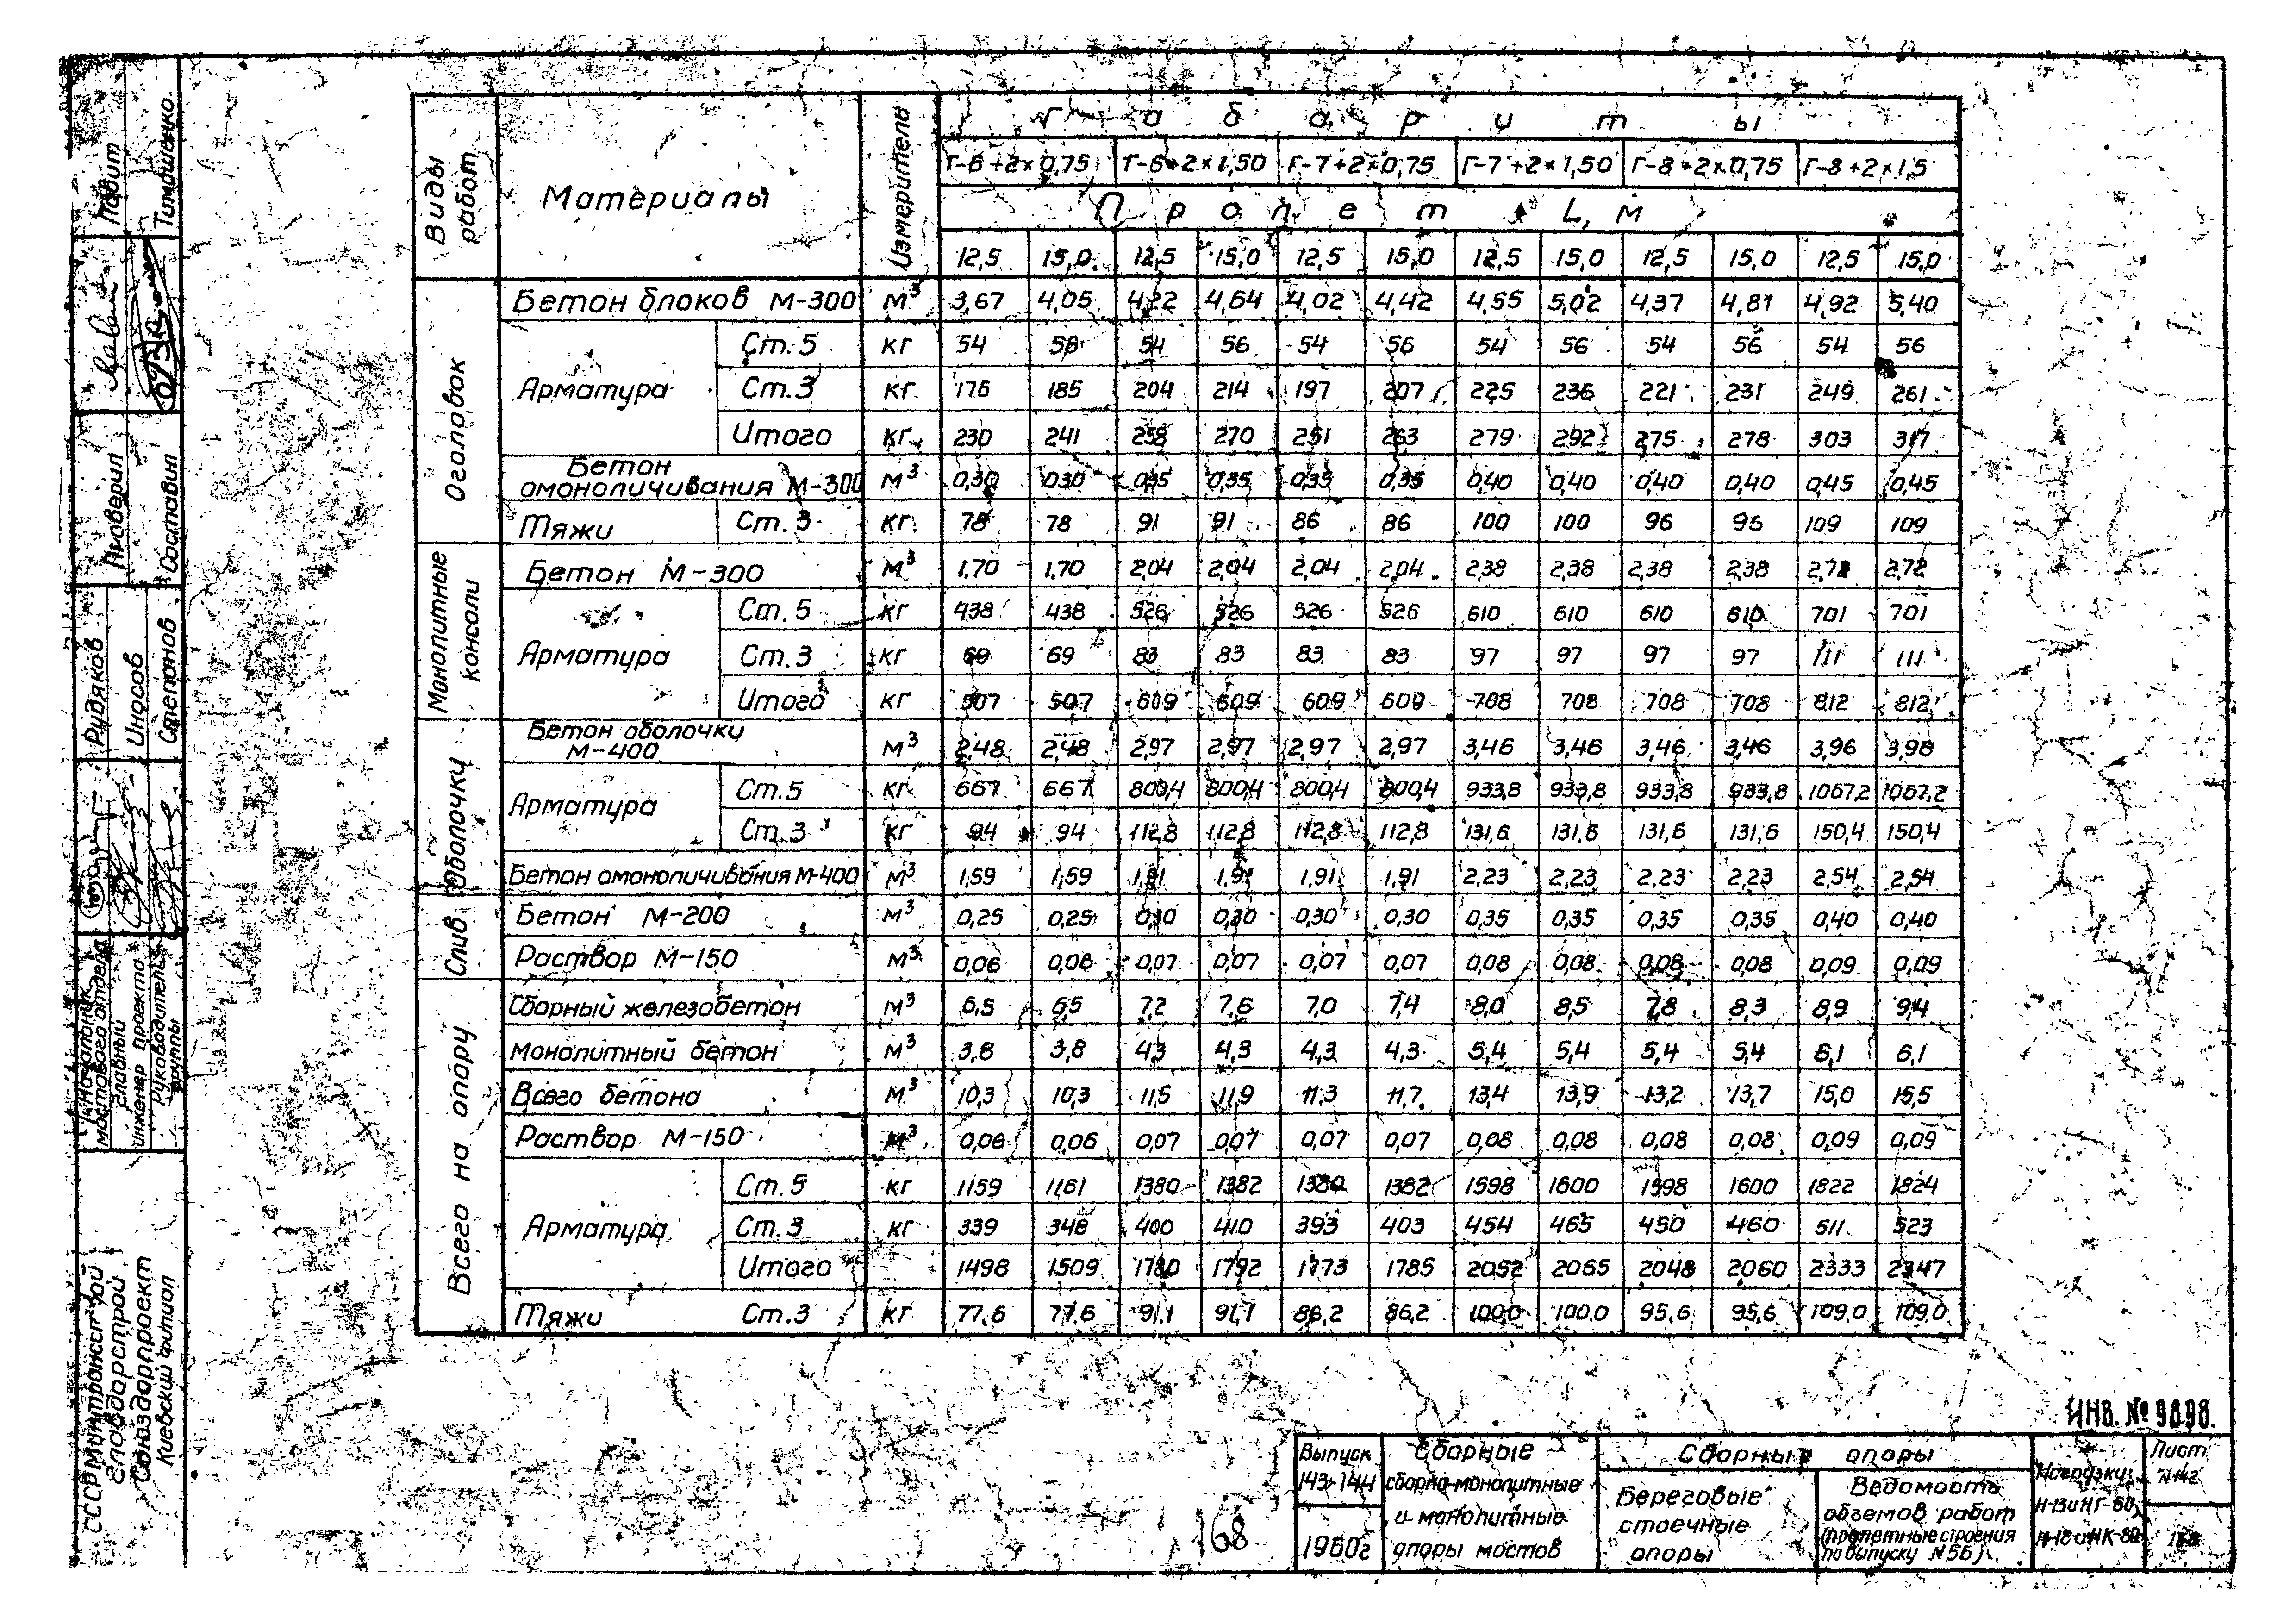 Виды работ Материалы Измеритель Габариты
Г-6+2×0,75 Г-6+2×1,50 Г-7+2×0,75 Г-7+2×1,50 Г-8+2×0,75 Г-8+2×1,5
Пролет L, м
12,5 15,0 12,5 15,0 12,5 15,0 12,5 15,0 12,5 15,0 12,5 15,0
Оголовок
Бетон блоков М-300 м³ 3,67 4,05 4,22 4,64 4,02 4,42 4,55 5,02 4,37 4,81 4,92 5,40
Арматура
Ст.5 кг 54 56 54 56 54 56 54 56 54 56 54 56
Ст.3 кг 176 185 204 214 197 207 225 236 221 231 249 261
Итого кг 230 241 258 270 251 263 279 292 275 278 303 317
Бетон омоноличивания М-300 м³ 0,30 0,30 0,35 0,35 0,35 0,35 0,40 0,40 0,40 0,40 0,45 0,45
Тяжи Ст.3 кг 78 78 91 91 86 86 100 100 96 96 109 109
Монолитные консоли
Бетон М-300 м³ 1,70 1,70 2,04 2,04 2,04 2,04 2,38 2,38 2,38 2,38 2,72 2,72
Арматура
Ст.5 кг 438 438 526 526 526 526 610 610 610 610 701 701
Ст.3 кг 69 69 83 83 83 83 97 97 97 97 111 111
Итого кг 507 507 609 609 609 609 708 708 708 708 812 812
Оболочки
Бетон оболочки М-400 м³ 2,48 2,48 2,97 2,97 2,97 2,97 3,46 3,46 3,46 3,46 3,96 3,96
Арматура
Ст.5 кг 667 667 800,4 800,4 800,4 800,4 933,8 933,8 933,8 933,8 1067,2 1067,2
Ст.3 кг 94 94 112,8 112,8 112,8 112,8 131,6 131,6 131,6 131,6 150,4 150,4
Бетон омоноличивания М-400 м³ 1,59 1,59 1,91 1,91 1,91 1,91 2,23 2,23 2,23 2,23 2,54 2,54
Слив
Бетон М-200 м³ 0,25 0,25 0,30 0,30 0,30 0,30 0,35 0,35 0,35 0,35 0,40 0,40
Раствор М-150 м³ 0,06 0,06 0,07 0,07 0,07 0,07 0,08 0,08 0,08 0,08 0,09 0,09
Всего на опору
Сборный железобетон м³ 6,5 6,5 7,2 7,6 7,0 7,4 8,0 8,5 7,8 8,3 8,9 9,4
Монолитный бетон м³ 3,8 3,8 4,3 4,3 4,3 4,3 5,4 5,4 5,4 5,4 6,1 6,1
Всего бетона м³ 10,3 10,3 11,5 11,9 11,3 11,7 13,4 13,9 13,2 13,7 15,0 15,5
Раствор М-150 м³ 0,06 0,06 0,07 0,07 0,07 0,07 0,08 0,08 0,08 0,08 0,09 0,09
Арматура
Ст.5 кг 1159 1161 1380 1382 1380 1382 1598 1600 1598 1600 1822 1824
Ст.3 кг 339 348 400 410 393 403 454 465 450 460 511 523
Итого 1498 1509 1780 1792 1773 1785 2052 2065 2048 2060 2333 2347
Тяжи Ст.3 кг 77,6 77,6 91,1 91,1 86,2 86,2 100,0 100,0 95,6 95,6 109,0 109,0
Тимошенко
Проверил
Составил
Рудяков
Иносов
Степанов
Начальник мостового отдела
Главный инженер проекта
Руководитель группы
СССР Минтрансстрой
Главдорстрой
Союздорпроект
Киевский филиал
ИНВ. № 9898.
168
Выпуск
143-144
1960г
Сборные
сборно-монолитные
и монолитные
опоры мостов
Сборные опоры
Береговые
стоечные
опоры
Ведомость
обземов работ
(пролетные строения
по выпуску N56)
Нагрузки:
Н-13 и НГ-60,
Н-18 и НК-80
Лист
N142